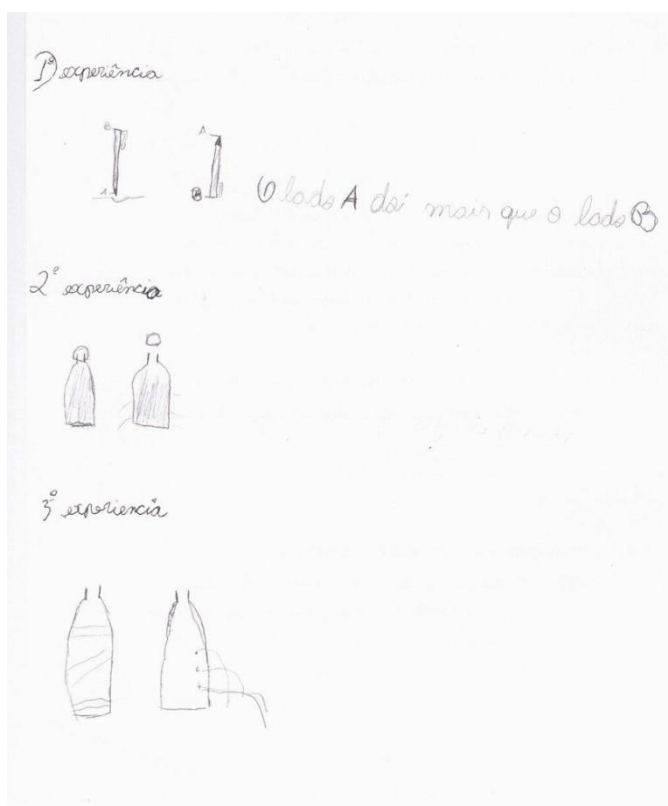 1º) experiência
B A
A B
O lado A dói mais que o lado B
2º experiência
3º experiencia